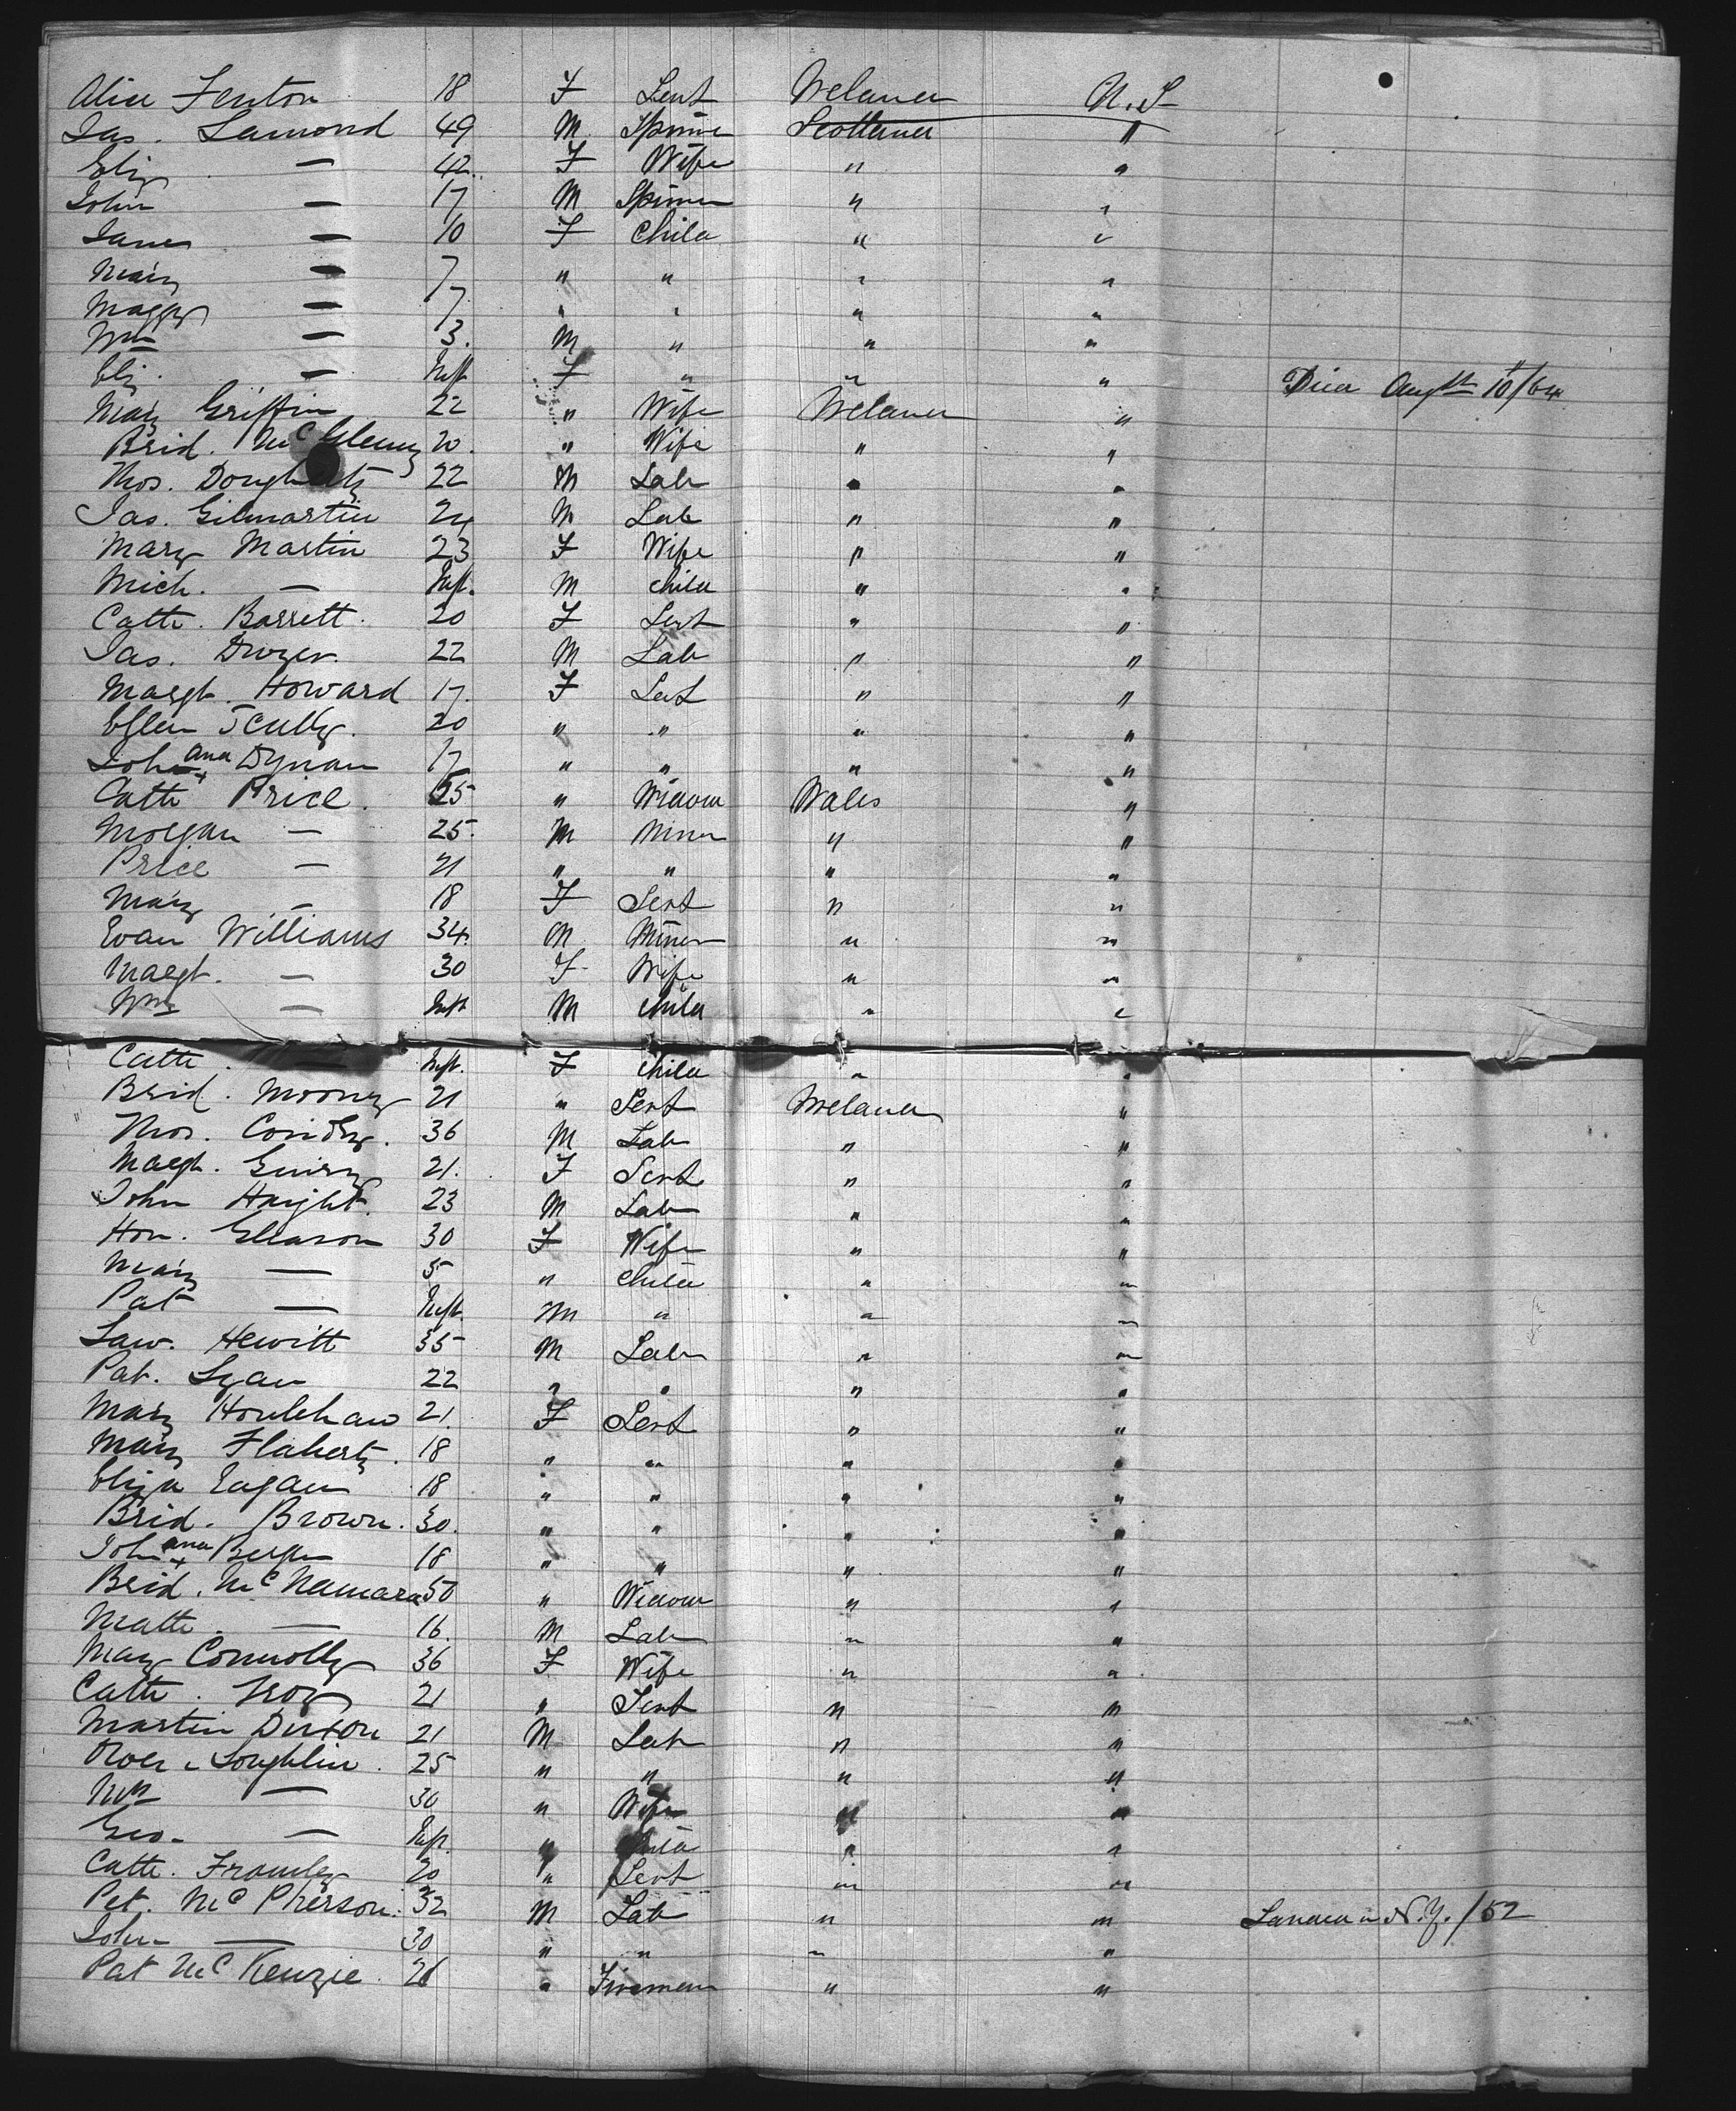 Alice Fenton 18 F Servt Ireland U.S
Jas. Lamond 49 M Spinner Scotland "
Eliz — 42 F Wife " "
John — 17 M Spinner " "
Janet — 10 F Child " "
Mary — 7 " " " "
Maggy — 7 " " " "
Wm — 3. M " " "
Eliz. — Inft F " " " Died Augst 10/64
Mary Griffin 22 " Wife Ireland "
Brid. McGlenny 20. " Wife " "
Thos. Dougherty 22 M Lab " "
Jas. Gilmartin 24 M Lab " "
Mary Martin 23 F Wife " "
Mich. — Inft. M Child " "
Cath. Barrett. 20 F Servt " "
Jas. Dwyer. 22 M Lab " "
Margt. Howard 17. F Servt " "
Ellen Scully. 20 " " " "
Johanna Dynan 17 " " " "
Cath Price. 55 " Widow Wales "
Morgan — 25. M Miner " "
Price — 21 " " " "
Mary — 18 F Servt " "
Evan Williams 34. M Miner " "
Margt. — 30 F Wife " "
Wm — Inft M Child " "
Cath. Inft. F Child " "
Brid. Mooney 21 " Servt Ireland "
Thos. 36 M Lab " "
Margt. 21. F Servt " "
John Haight. 23 M Lab " "
Hon. Gleason 30 F Wife " "
Mary — 5 " Child " "
Pat — Inft. M " " "
Law. Hewitt 35 M Lab " "
Pat. 22 " " " "
Mary Houlehan 21. F Servt " "
Mary Flaherty. 18 " " " "
Eliza Eagan 18 " " " "
Brid. Brown. 30. " " " "
Johanna 18 " " " "
Brid. McNamara 50 " Widow " "
Matt. — 16. M Lab " "
Mary Connolly 36 F Wife " "
Cath. Troy 21 " Servt " "
Martin 21 M Lab " "
Loughlin. 25 " " " "
— 30 " Wife " "
Geo. — Inft. " Child " "
Cath. 20 " Servt " "
Pet. McPherson. 32 M Lab " " Landed in N.Y. /52
John — 30 " " " "
Pat McKenzie. 26 " Fireman " "